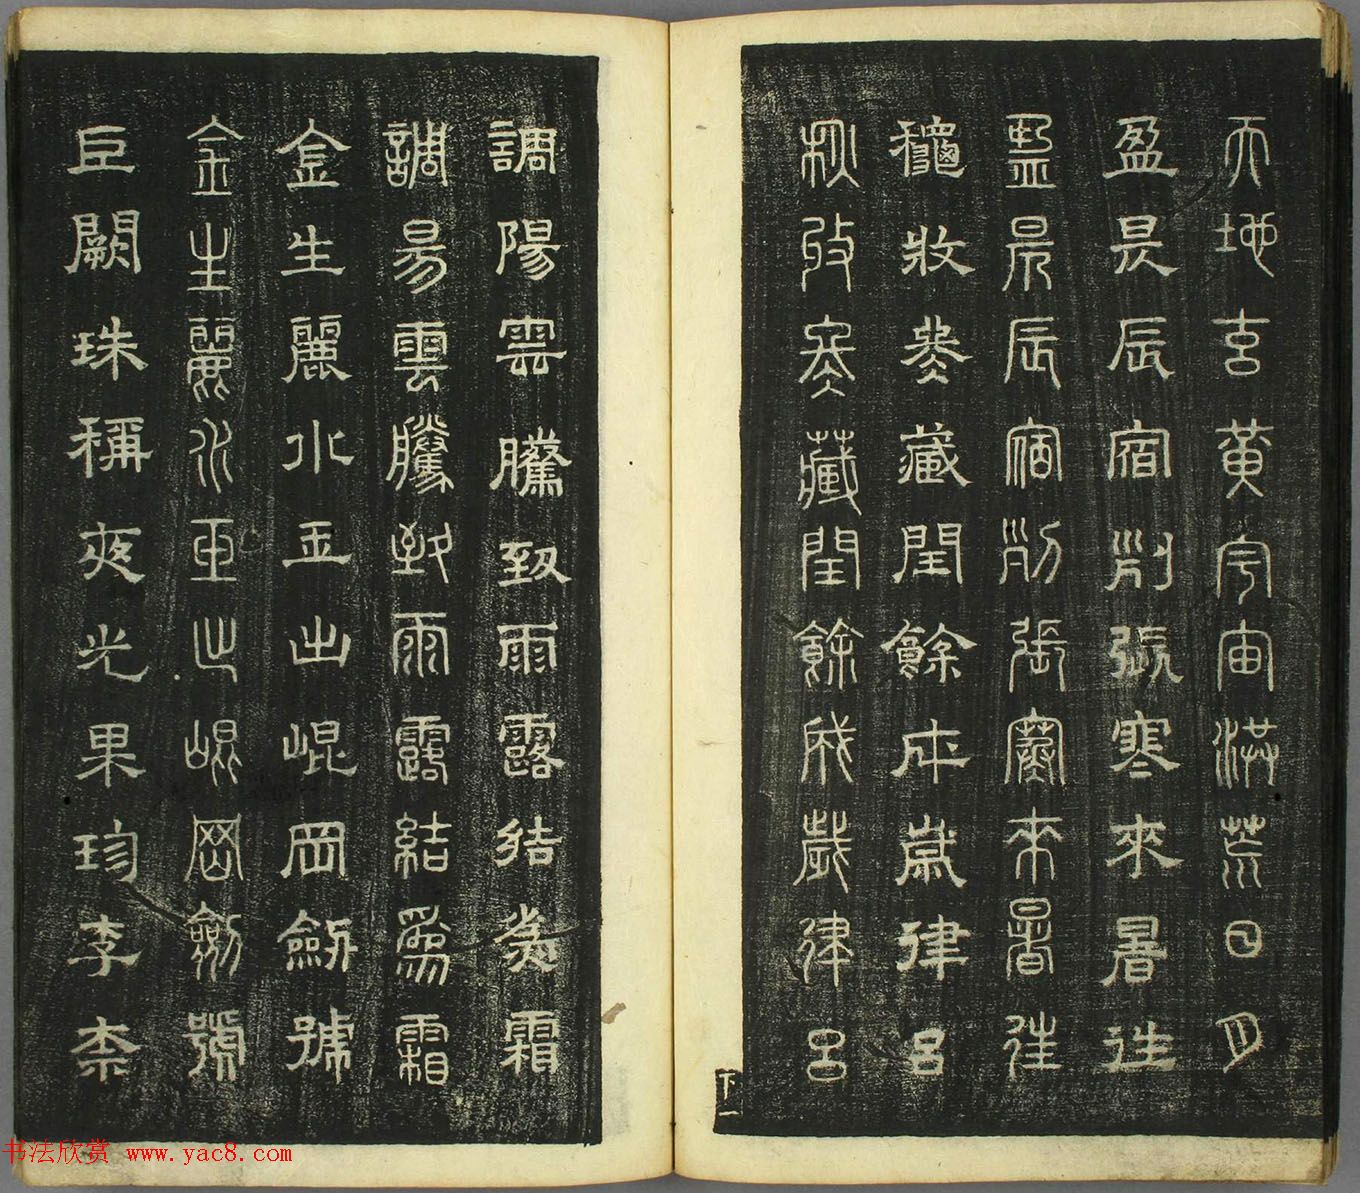 天地玄黃宇宙洪荒日月
盈昃辰宿列張寒來暑往
盈昃辰宿列張寒來暑往
穐收冬藏閏餘成歲律呂
秋收冬藏閏餘成歲律呂
下一
調陽雲騰致雨露結為霜
調昜雲騰致雨露結為霜
金生麗水玉出崐岡劒號
金生麗水玉出崐岡劒號
巨闕珠稱夜光果珍李柰
书法欣赏 www.yac8.com